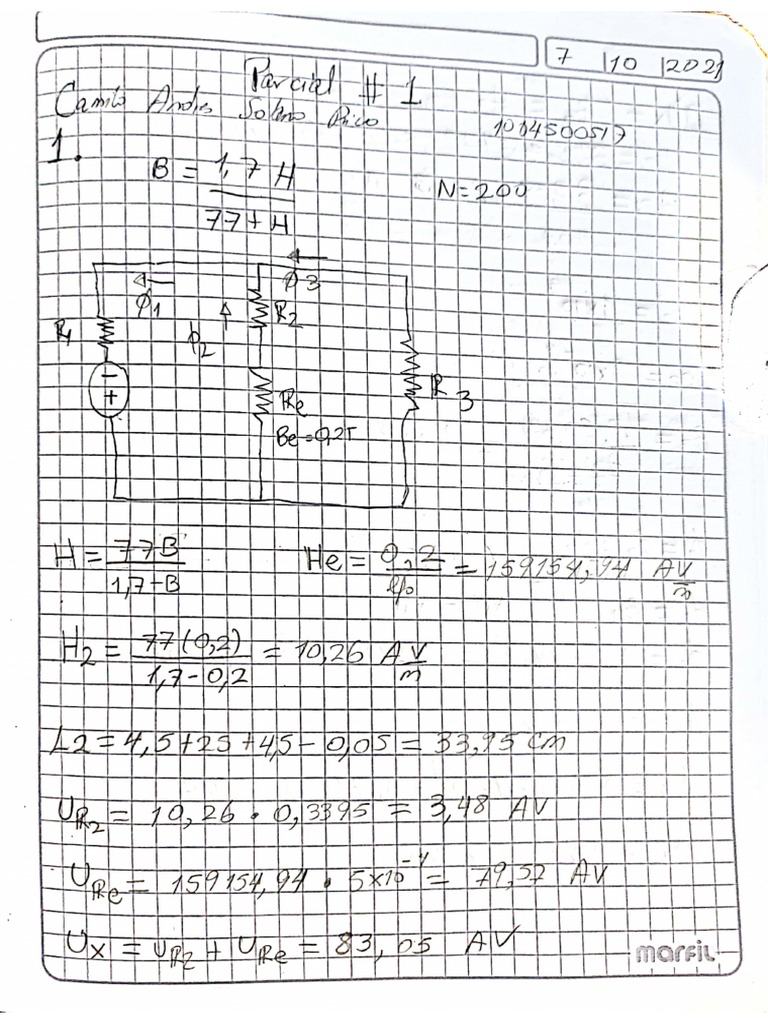 7 | 10 | 2021
Parcial # 1
Camilo Andrés Solano Rico
1004500517
1.
B = 1,7 H / 77 + H
N = 200
ϕ3
ϕ1
R2
R1
ϕ2
- +
Re
R3
Be = 0,2T
H = 77B / 1,7-B
He = 0,2 / μo = 159154,94 Av/m
H2 = 77(0,2) / 1,7-0,2 = 10,26 Av/m
L2 = 4,5+25+4,5-0,05 = 33,95 cm
UR2 = 10,26 · 0,3395 = 3,48 AV
URe = 159154,94 · 5×10⁻⁴ = 79,57 AV
Ux = UR2 + URe = 83,05 AV
marfil